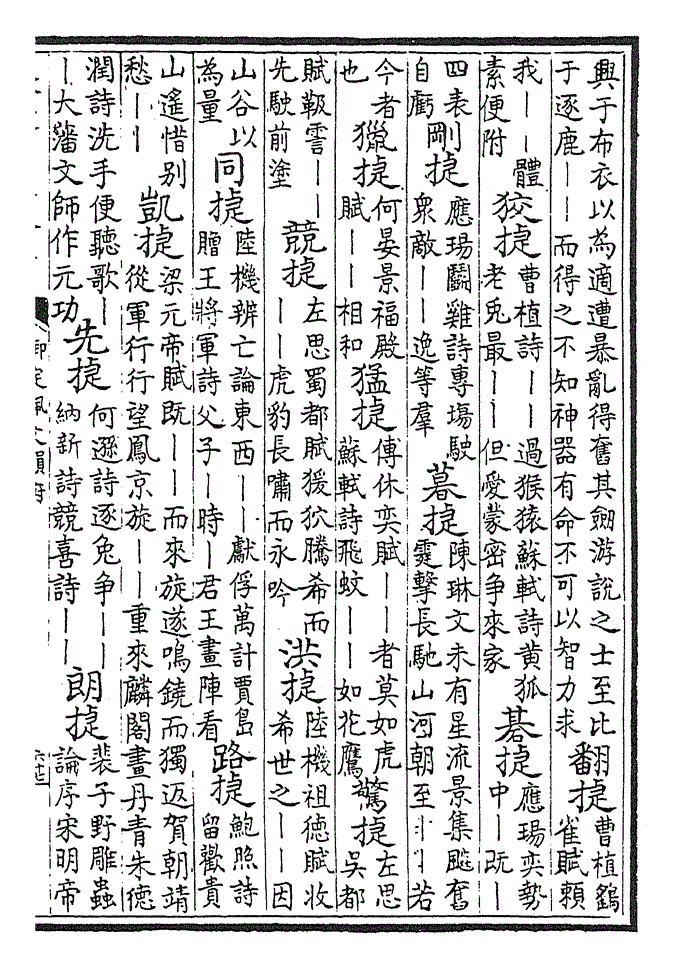 興于布衣以為適遭暴亂得奮其劒游説之士至比
于逐鹿——而得之不知神器有命不可以智力求
翻捷
曹植鷂
雀賦頼
我——體
素便附
狡捷
曹植詩——過猴猿蘇軾詩黄狐
老兎最——但愛蒙密争來家
碁捷
應瑒奕勢
中—既—
四表
自虧
剛捷
應瑒鬭雞詩專塲駛
衆敵——逸等羣
暮捷
陳琳文未有星流景集飈奮
霆擊長馳山河朝至——若
今者
也
獵捷
何晏景福殿
賦——相和
猛捷
傅休奕賦——者莫如虎
蘇軾詩飛蚊——如花鷹
驚捷
左思
吳都
賦靸霅——
先駛前塗
競捷
左思蜀都賦猨狖騰希而
——虎豹長嘯而永吟
洪捷
陸機祖德賦收
希世之——因
山谷以
為量
同捷
陸機辨亡論東西——獻俘萬計賈島
贈王將軍詩父子—時—君王畫陣看
路捷
鮑照詩
留歡貴
山遥惜别
愁——
凱捷
梁元帝賦既——而來旋遂鳴鐃而獨返賀朝靖
從軍行行望鳳京旋——重來麟閣畫丹青朱徳
潤詩洗手便聽歌—
—大藩文師作元功
先捷
何遜詩逐兔争——
納新詩競喜詩——
朗捷
裴子野雕蟲
論序宋明帝